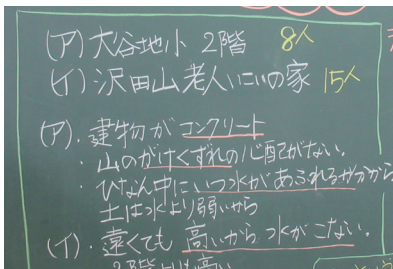 (ア)大谷地小 2階 8人
(イ)沢田山老人いこいの家 15人
(ア)・建物がコンクリート
・山のがけくずれの心配がない。
・ひなん中にいつ水があふれるか分から
土は水より弱いから
(イ)・遠くても高いから水がこない。